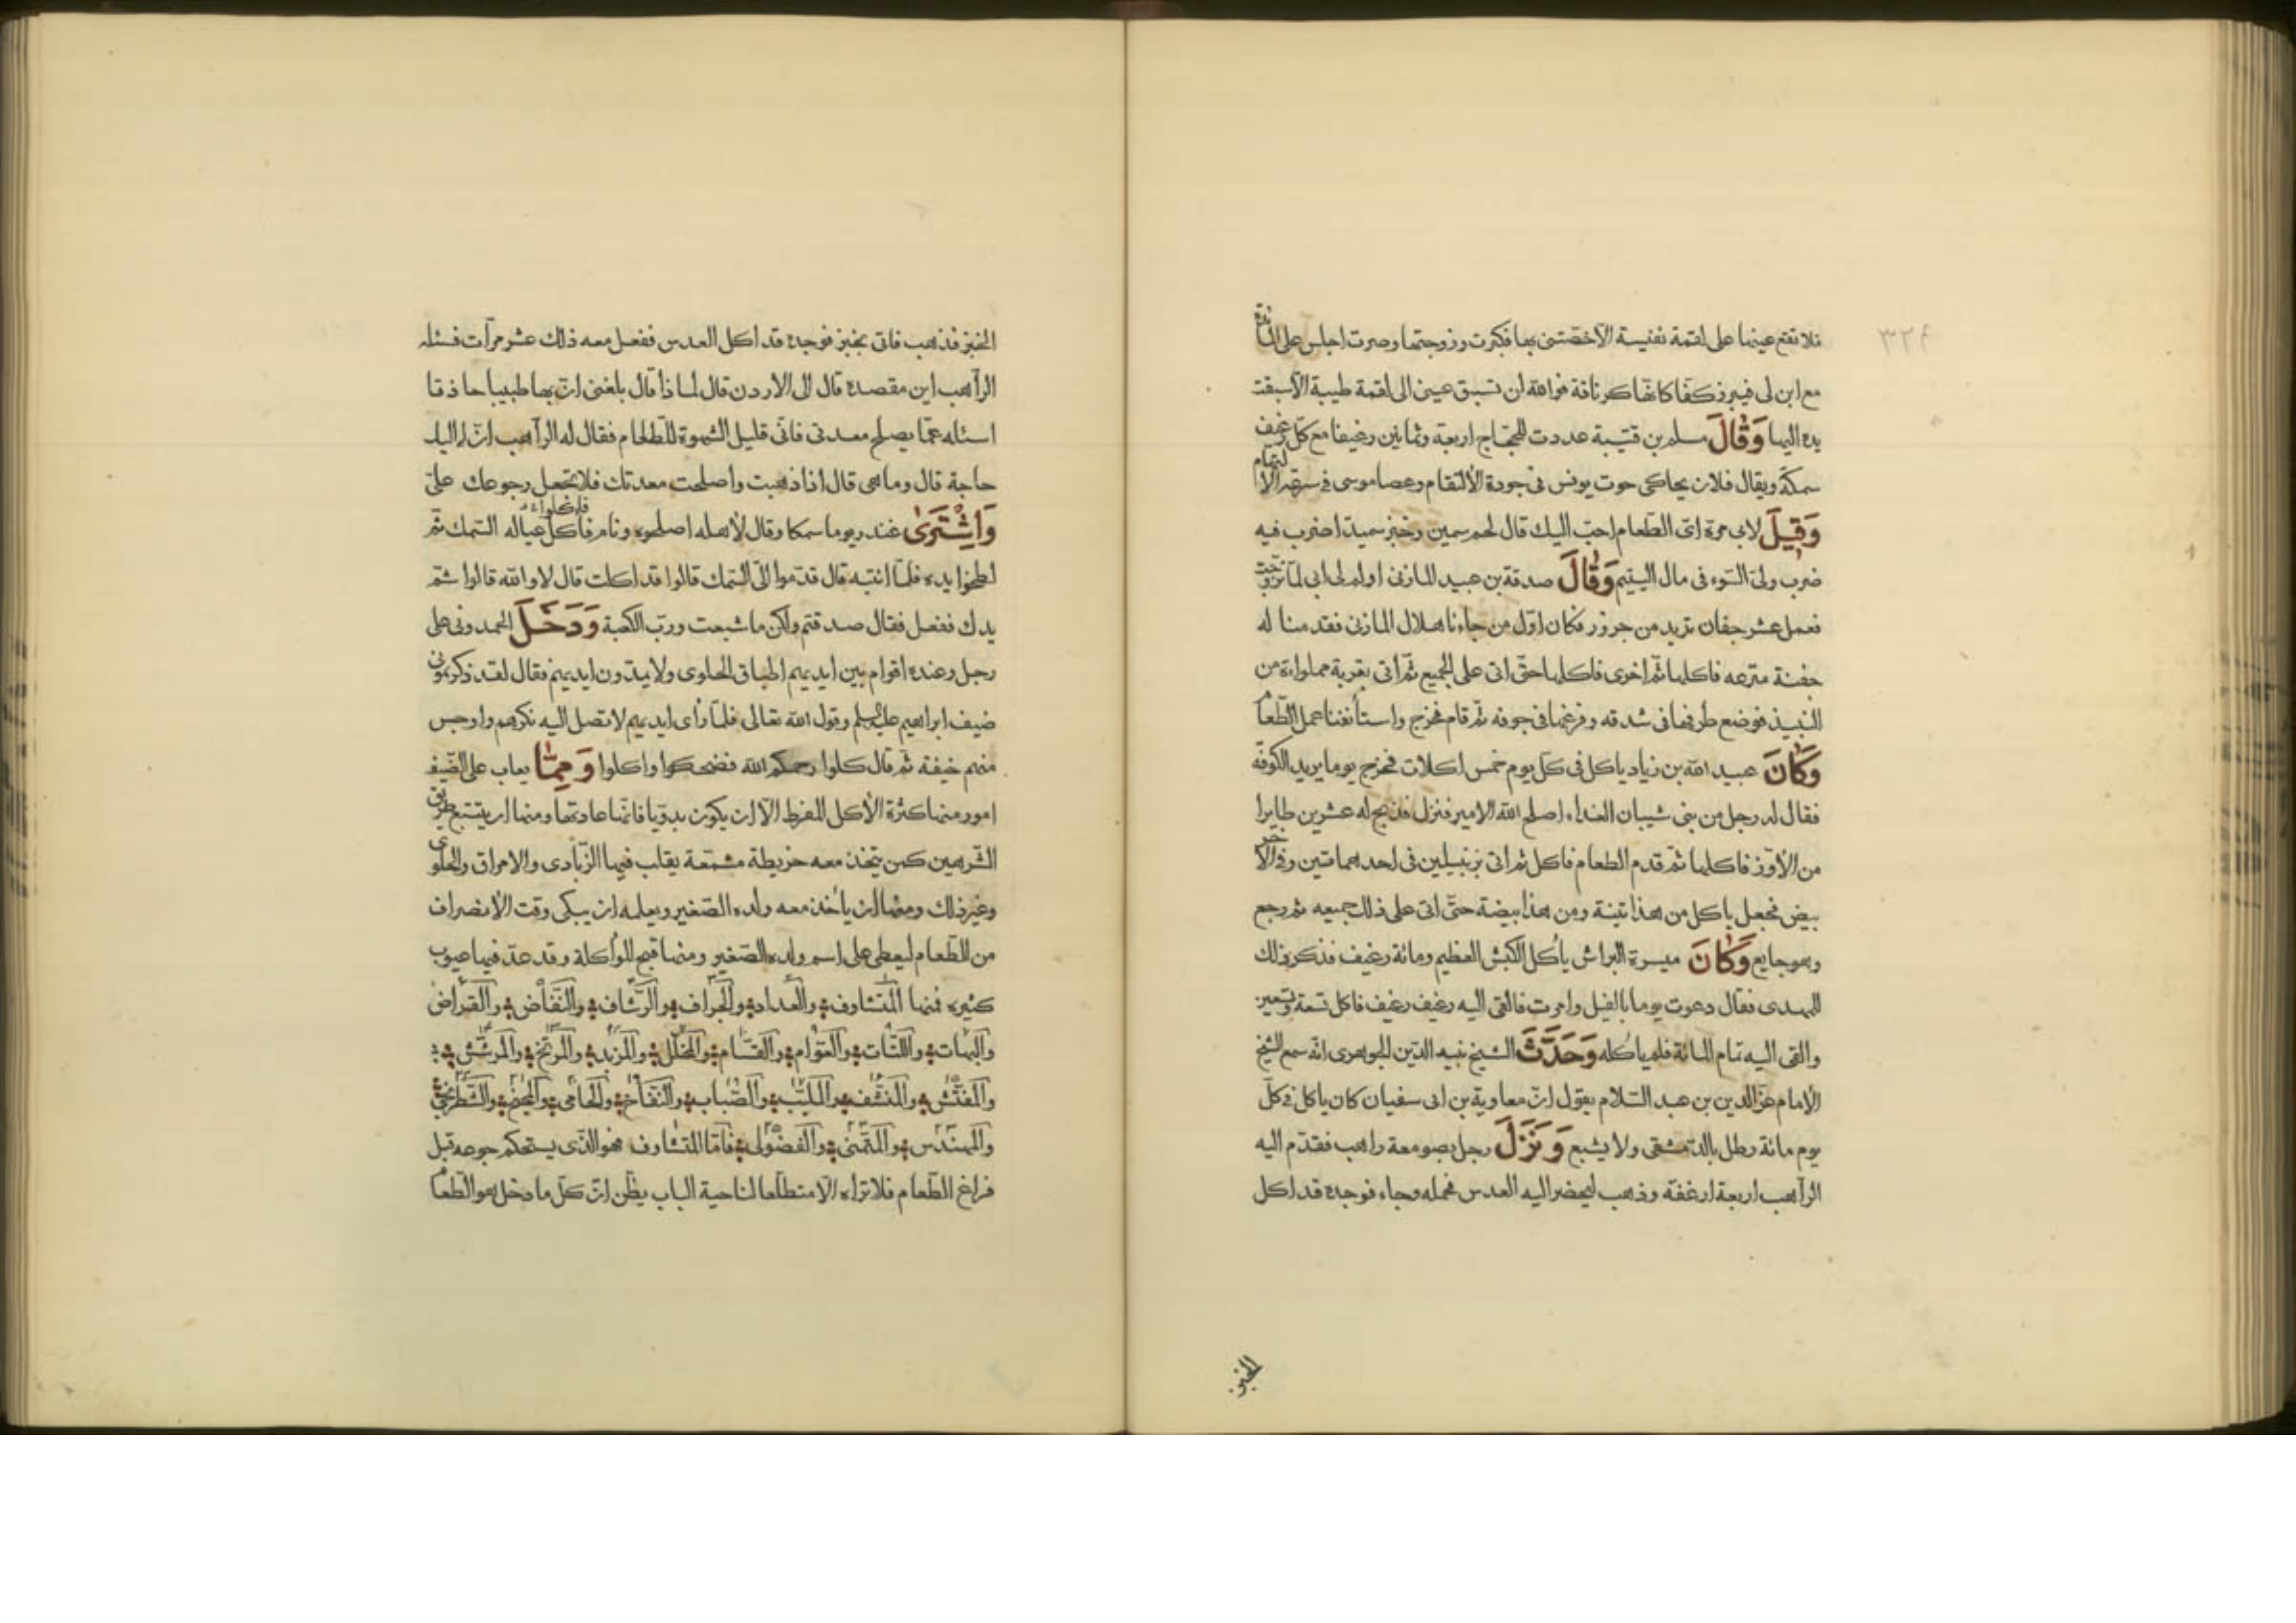 ٣٢٤
فلا تقع عينها على لقمة نفيسة الا خصّتنى بها فكبرت وزوجتها وصرت اجلس على المائدة
مع ابن لى فيبرز كفّا كانها كرنافة فوالله لن تسبق عينى الى لقمة طيبة الّا سبقت
يده اليها وَقَالَ مسلم بن قتيبة عددت للحجّاج اربعة وثمانين رغيفا مع كلّ رغيف
سمكة ويقال فلان يحاكى حوت يونس فى جودة الالتقام وعصا موسى فى سرعة الالتهام
وَقِيلَ لابى مرة اىّ الطّعام احبّ اليك قال لحم سمين وخبز سميد اضرب فيه
ضرب ولىّ السّوء فى مال اليتيم وَقَالَ صدقة بن عبيد المازنى اولم لى ابى لمّا تزوّجت
فعمل عشر جفان ثريد من جزور فكان اوّل من جاءنا هلال المازنى فقدمنا له
جفنة مترعه فاكلها ثمّ اخرى فاكلها حتّى اتى على الجميع ثمّ اتى بقربة مملواءة من
النبيذ فوضع طرفها فى شدقه وفرغها فى جوفه ثم قام فخرج واستأنفنا عمل الطّعام
وَكَانَ عبيد الله بن زياد ياكل فى كلّ يوم خمس اكلات فخرج يوما يريد الكوفة
فقال له رجل من بنى شيبان الغداء اصلح الله الامير فنزل فذبح له عشرين طايرا
من الأوّز فاكلها ثمّ قدم الطعام فاكل ثم اتى بزنبيلين فى احدهما تين وفى الآخر
بيض فجعل ياكل من هذا تينة ومن هذا بيضة حتّى اتى على ذلك جميعه ثم رجع
وهو جايع وَكَانَ ميسرة البراش يأكل الكبش العظيم ومائة رغيف فذكر ذلك
للمهدى فقال دعوت يوما بالفيل وامرت فالقى اليه رغيف رغيف فاكل تسعة وتسعين
والقى اليه تمام المائة فلم ياكله وَحَدَّثَ الشيخ نبيه الدّين الجوهرى انّه سمع الشيخ
الامام عزّ الدين بن عبد السّلام يقول انّ معاوية بن ابى سفيان كان ياكل فى كلّ
يوم مائة رطل بالدّمشقى ولا يشبع وَنَزَلَ رجل بصومعة راهب فقدّم اليه
الرّاهب اربعة ارغفة وذهب ليحضر اليه العدس فحمله وجاء فوجده قد اكل
الخبز
الخبز فذهب فاتى بخبز فوجده قد اكل العدس ففعل معه ذلك عشر مرّات فسئله
الرّاهب اين مقصده قال الى الاردن قال لماذا قال بلغنى انّ بها طبيبا حاذقا
اسئله عمّا يصلح معدتى فانّى قليل الشهوة للطّعام فقال له الرّاهب انّ لى اليك
حاجة قال وما هى قال اذا ذهبت واصلحت معدتك فلا تجعل رجوعك علىّ
وَاشْتَرَىٰ غندر يوما سمكا وقال لأهله اصلحوه ونام فاكل عياله السّمك ثمّ
لطخوا يده فلمّا انتبه قال قدّموا الىّ السّمك قالوا قد اكلت قال لا والله قالوا شمّ
يدك ففعل فقال صدقتم ولكن ما شبعت وربّ الكعبة وَدَخَلَ الحمدونى على
رجل وعنده اقوام بين ايديهم اطباق الحلوى ولا يمدّون ايديهم فقال لقد ذكرتمونى
ضيف ابراهيم عليه السلم وقول الله تعالى فلمّا رأى ايديهم لا تصل اليه نكرهم واوجس
منهم خيفة ثم قال كلوا رحمكم الله فضحكوا واكلوا وَمِمَّا يعاب على الضّيف
امور منها كثرة الأكل المفرط الّا ان يكون بدويّا فانّها عادتها ومنها ان يتتبع طريق
الشّرهين كمن يتخذ معه خريطة مشمّعة يقلب فيها الزّبادى والامراق والحلوى
وغير ذلك ومنها ان يأخذ معه ولده الصّغير ويعلمه ان يبكى وقت الانصراف
من الطّعام ليعطى على اسم ولده الصّغير ومنها قبح المؤاكلة وقد عدّ فيها عيوب
كثيره فمنها المتشاوف والعداد والجراف والرّشاف والنّفّاض والقرّاض
والبهّات واللتّات والعوّام والقسّام والمخلّل والمزبد والمرنّخ والمرشّش
والمفتّش والمنشّف والملبّب والصّبّاب والنفّاخ والحامى والمجنّح والشّطرنجى
والمهندس والمتمنّى والفضولى فامّا المتشاوف فهو الذى يستحكم جوعه قبل
فراغ الطّعام فلا تراه الّا متطلّعا لناحية الباب يظن انّ كلّ ما دخل هو الطّعام